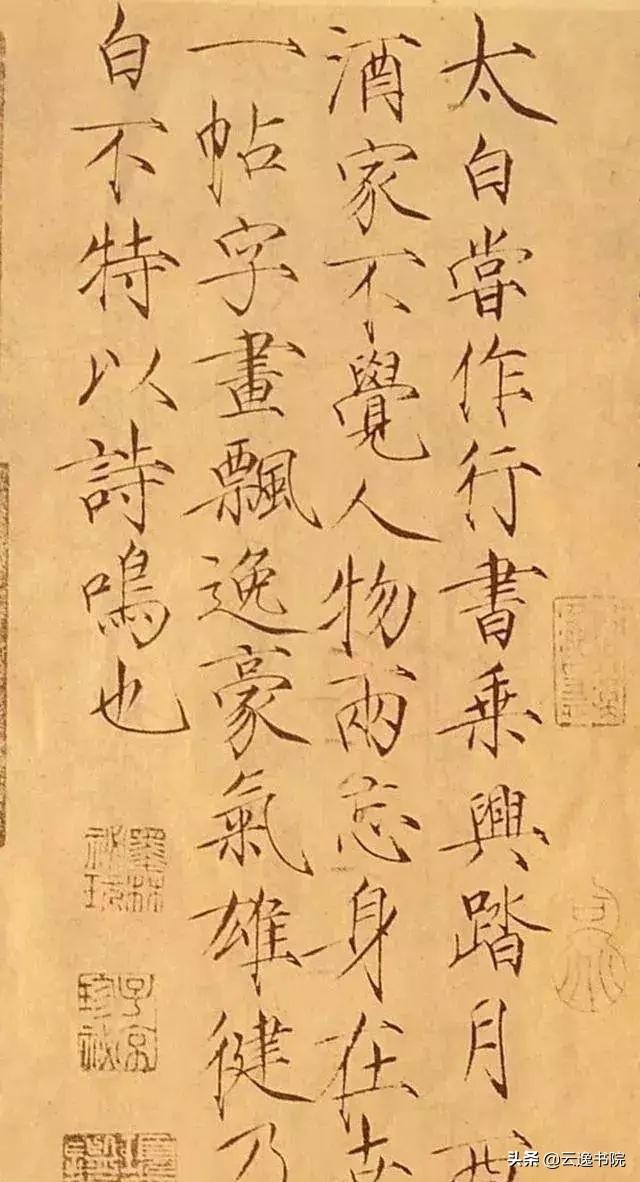 太白嘗作行書乘興踏月西
酒家不覺人物兩忘身在世
一帖字畫飄逸豪氣雄健乃
白不特以詩鳴也
墨林祕玩
子京珍祕
头条 @云逸书院